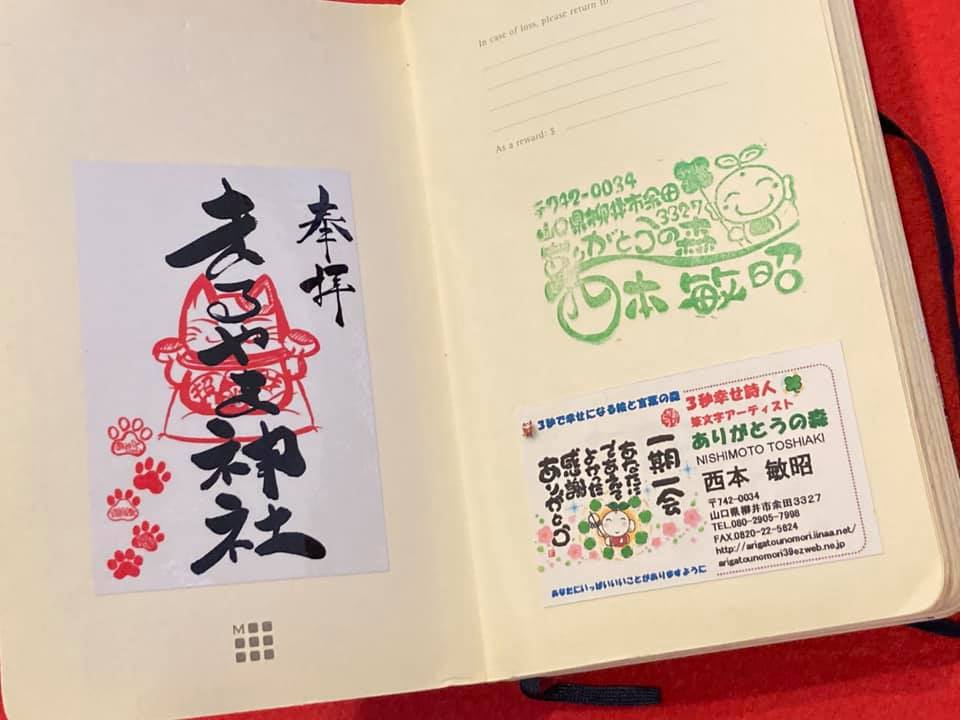 奉拝
まるやま神社
M
In case of loss, please return to:
As a reward: $
〒742-0034
山口県柳井市余田
3327
ありがとうの森
西本敏昭
3秒で幸せになる絵と言葉の森
3秒幸せ詩人
筆文字アーティスト
ありがとうの森
NISHIMOTO TOSHIAKI
西本 敏昭
〒742-0034
山口県柳井市余田3327
TEL.080-2905-7998
FAX.0820-22-5624
http://arigatounomori.iinaa.net/
arigatounomori39ezweb.ne.jp
一期一会
あなたに
であえて
よかった
感謝
ありがとう
あなたにいっぱいいいことがありますように